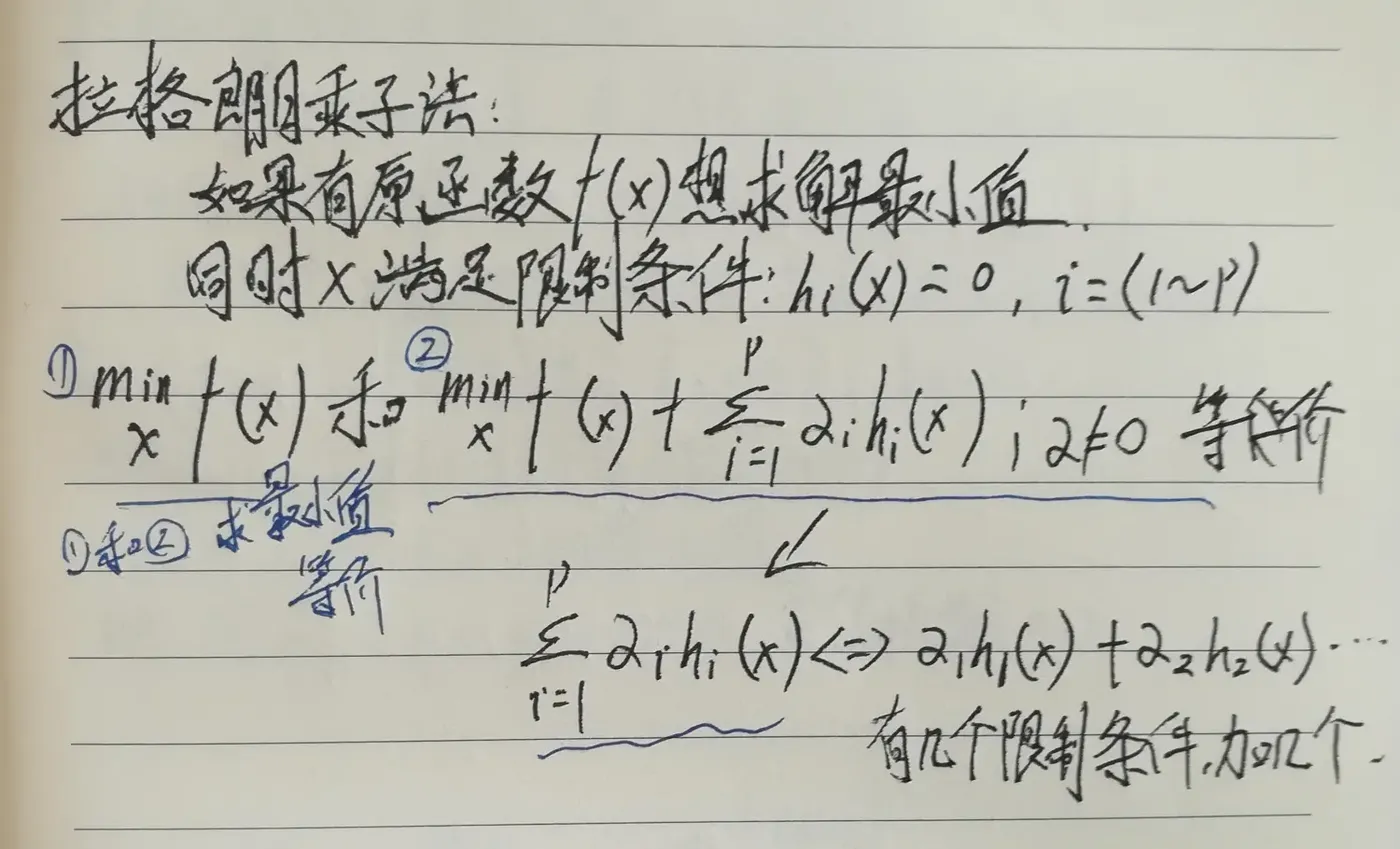 拉格朗日乘子法:
如果有原函数 f(x) 想求解最小值.
同时 x 满足限制条件: hi(x) = 0, i = (1~P)
① min x f(x) 和 ② min x f(x) + Σ i=1 P αi hi(x) ; α≠0 等价
①和② 求最小值
等价
Σ i=1 P αi hi(x) <=> α1h1(x) + α2h2(x) ...
有几个限制条件,加几个.